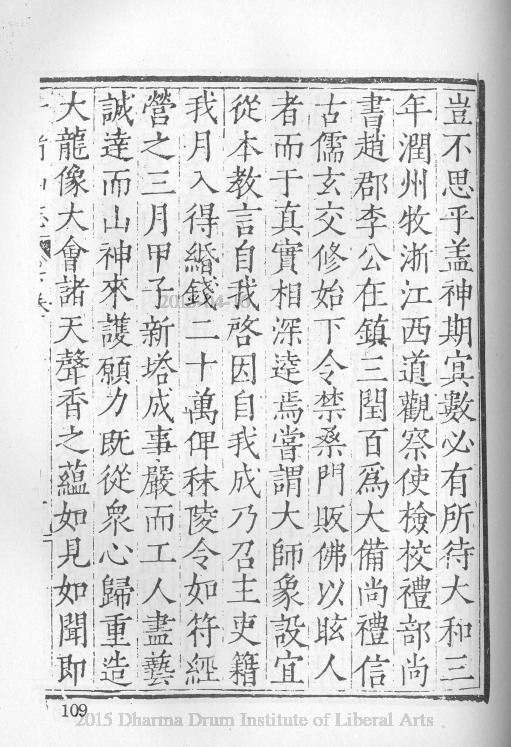 豈不思乎盖神期寘數必有所待大和三
年潤州牧浙江西道觀察使檢校禮部尚
書趙郡李公在鎮三閏百爲大備尚禮信
古儒玄交修始下令禁桑門販佛以眩人
者而于真實相深逵焉嘗謂大師象設宜
從本教言自我啓因自我成乃召主吏籍
我月入得緡錢二十萬俾秣陵令如符經
營之三月甲子新塔成事嚴而工人盡藝
誠達而山神來護願力既從衆心歸重造
大龍像大會諸天聲香之蘊如見如聞即
109
2015 Dharma Drum Institute of Liberal Arts